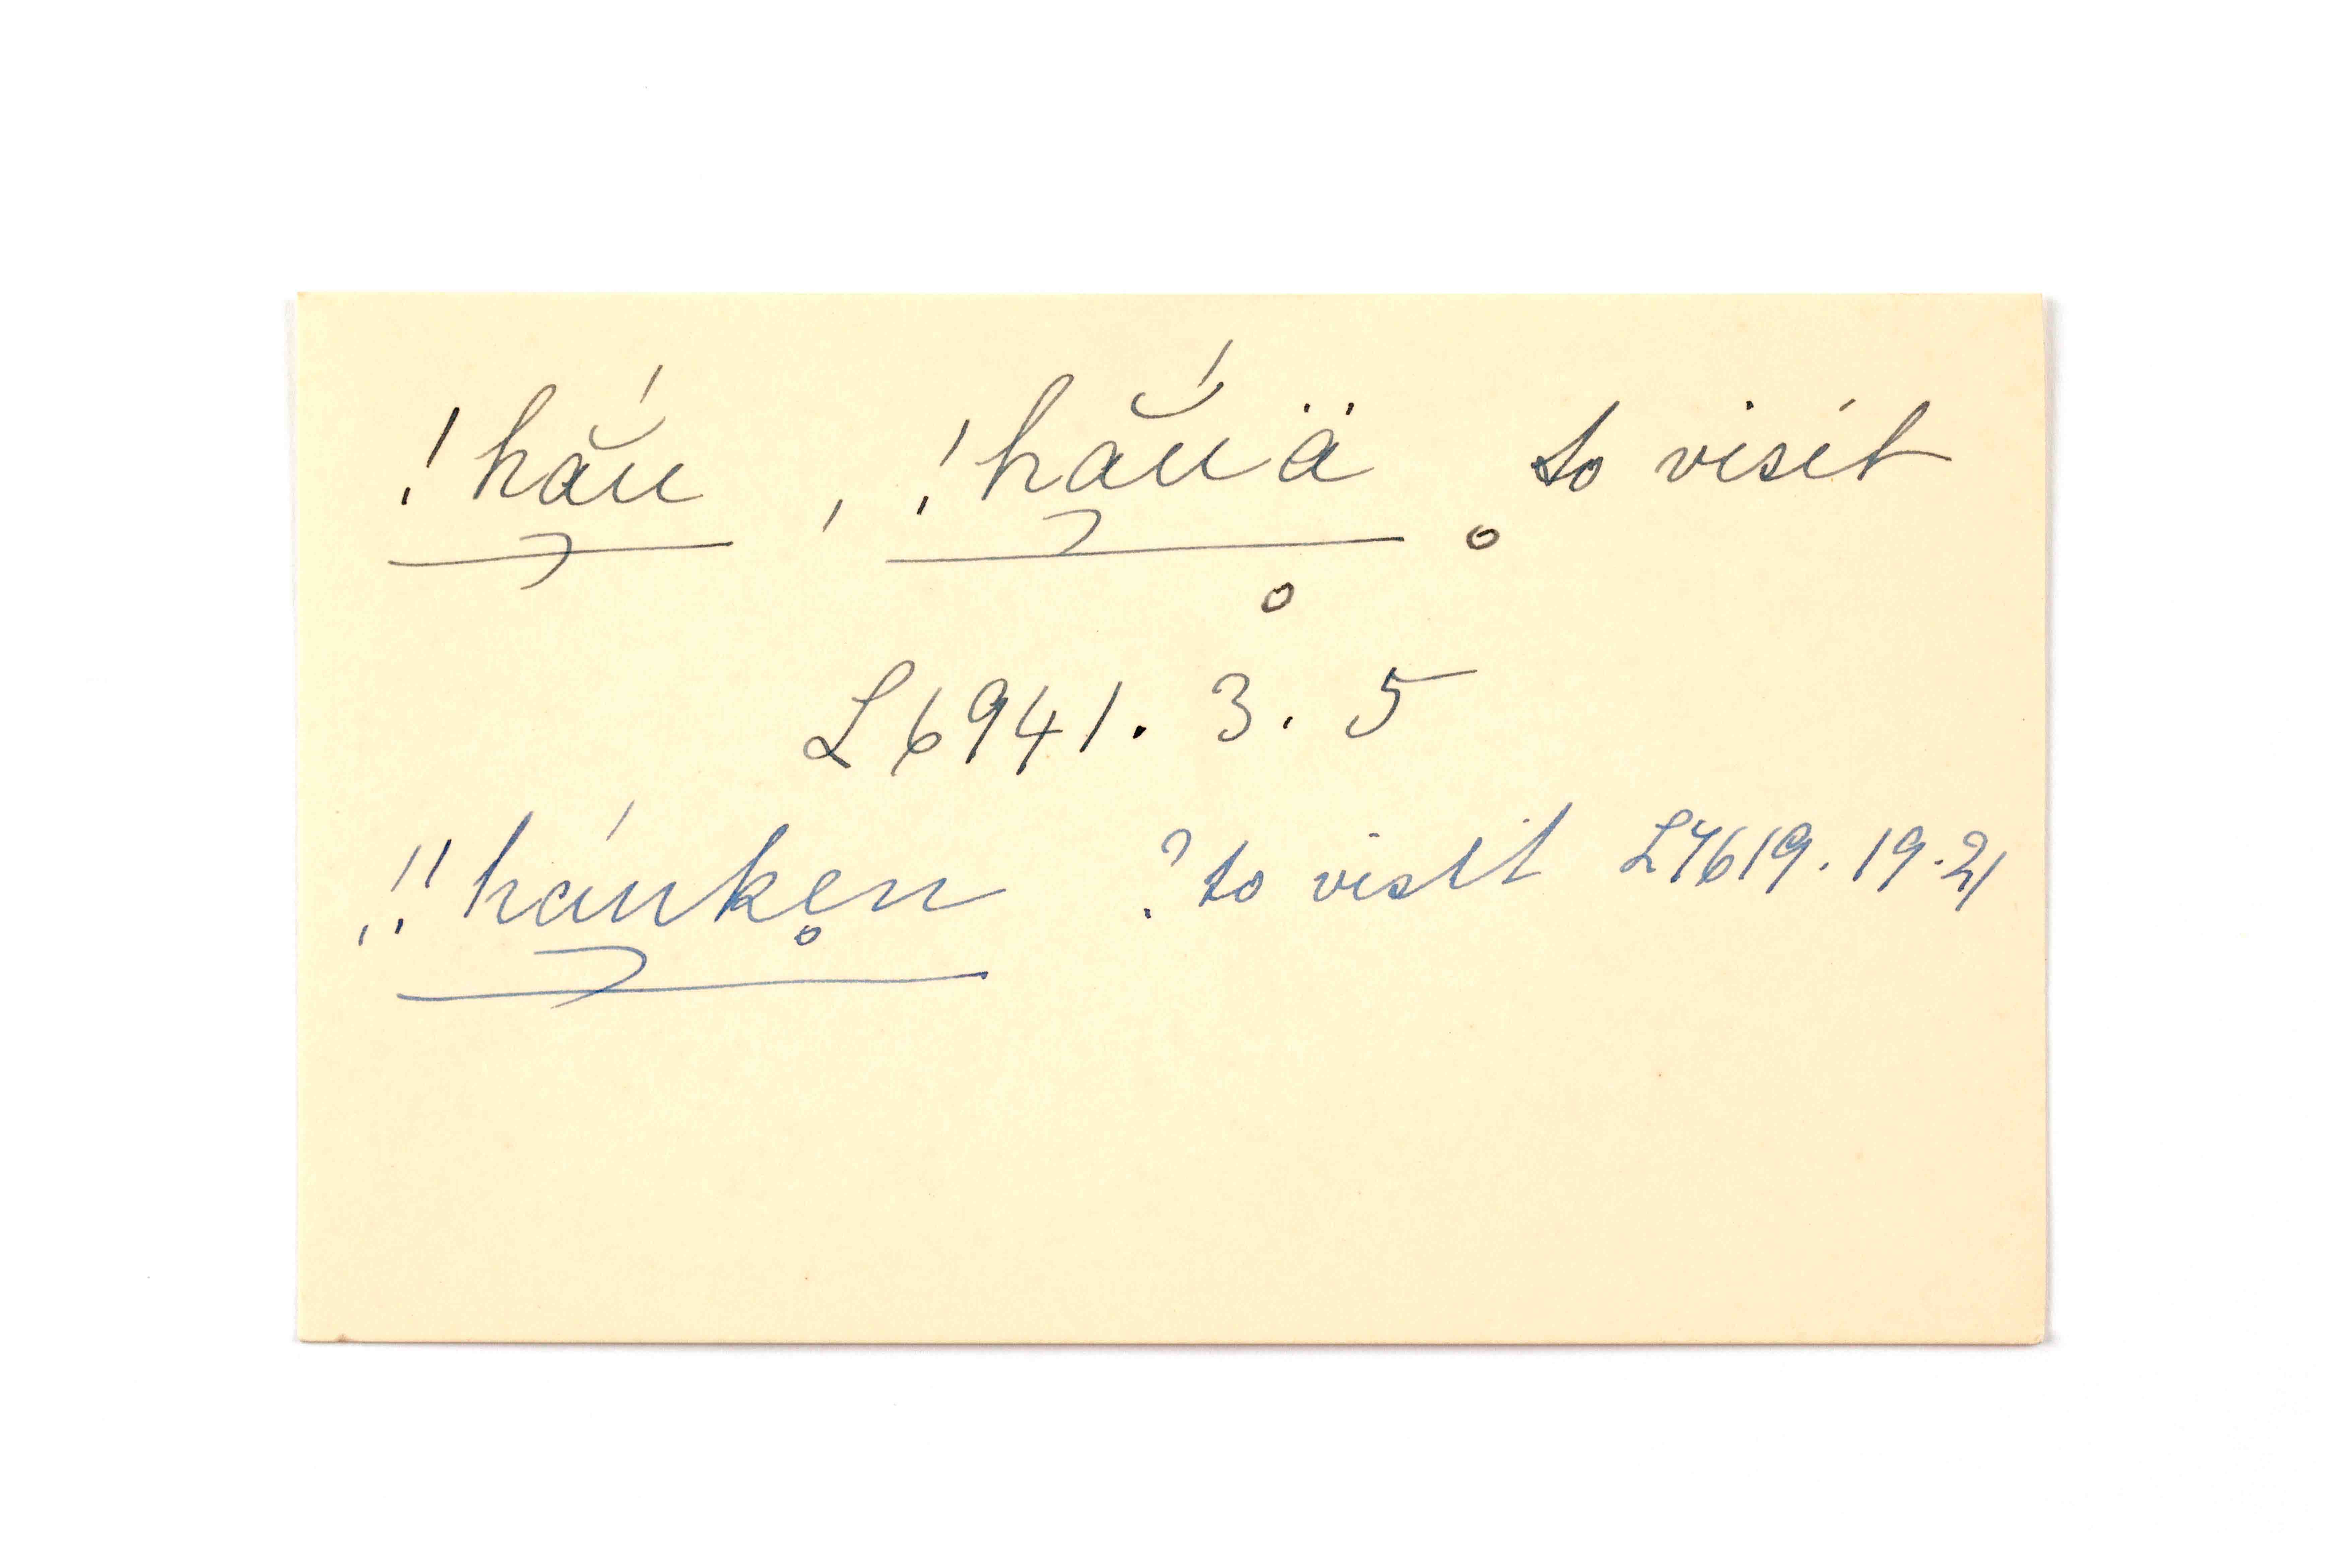 !hắu̯, !hắu̯ḁ̈ ̥ to visit
L6941. 3. 5
!!háu̯ke̥n ? to visit L7619. 19. 21